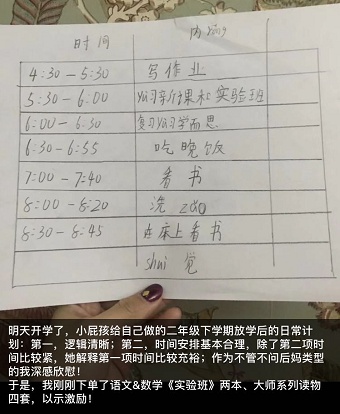 时间 内róng
4:30－5:30 写作业
5:30－6:00 yù习新课和实验班
6:00－6:30 复习yù习学而思
6:30－6:55 吃晚饭
7:00－7:40 看书
8:00－8:20 洗zǎo
8:30－8:45 在床上看书
shuì觉
明天开学了，小屁孩给自己做的二年级下学期放学后的日常计
划：第一，逻辑清晰；第二，时间安排基本合理，除了第二项时
间比较紧，她解释第一项时间比较充裕；作为不管不问后妈类型
的我深感欣慰！
于是，我刚刚下单了语文&数学《实验班》两本、大师系列读物
四套，以示激励！